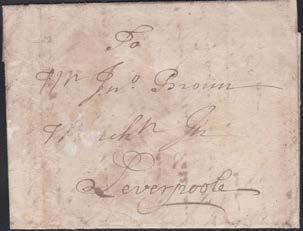 To
Mr Jno Brown
March't In
Leverpoole